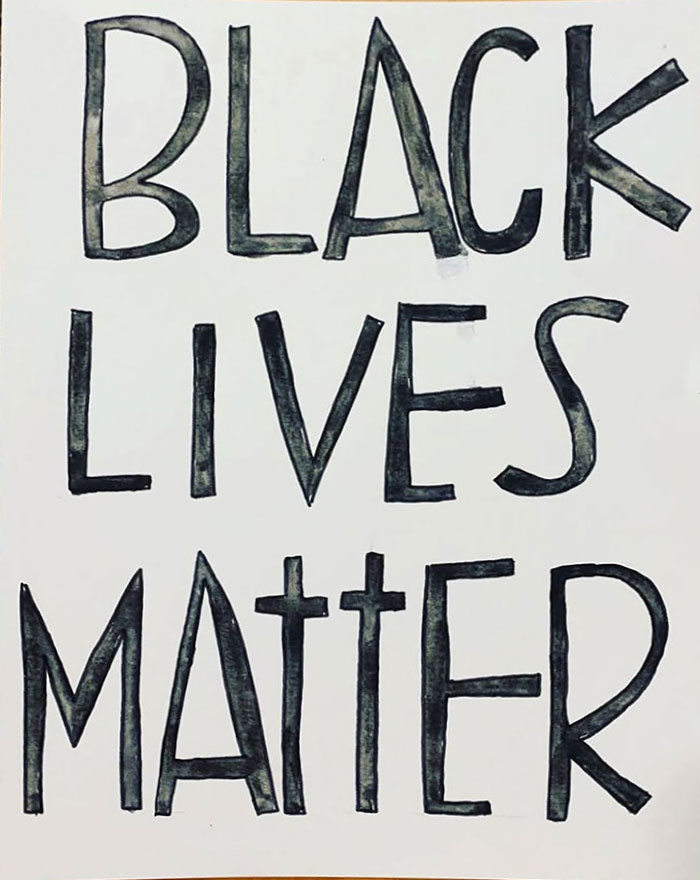 BLACK
LIVES
MAttER